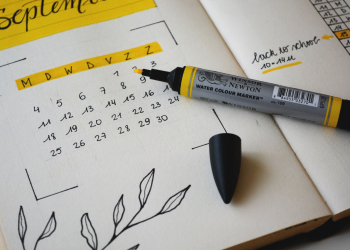 September
M D W D V Z Z
1 2
4 5 6 7 8 9
11 12 13 14 15 16 17
18 19 20 21 22 23 24
25 26 27 28 29 30
back to school
10-14u
WINSOR
& NEWTON
WATER COLOUR MARKER™